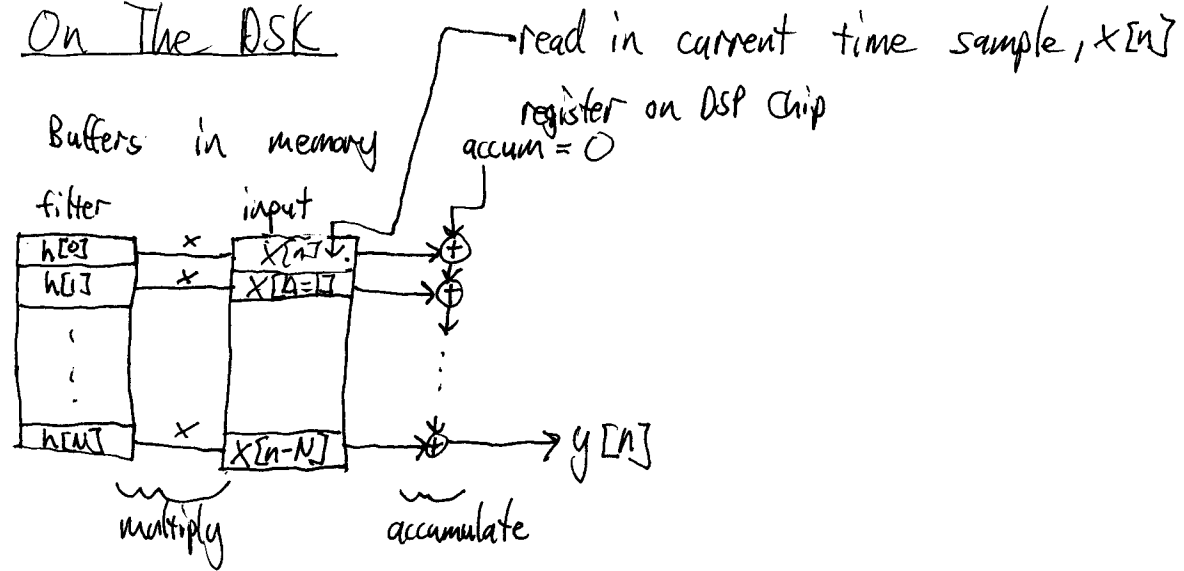 On The DSK
read in current time sample, x[n]
register on DSP Chip
Buffers in memory
accum = 0
filter
input
h[0]
x
x[n]
+
h[1]
x
x[n-1]
+
h[N]
x
x[n-N]
+
y[n]
multiply
accumulate